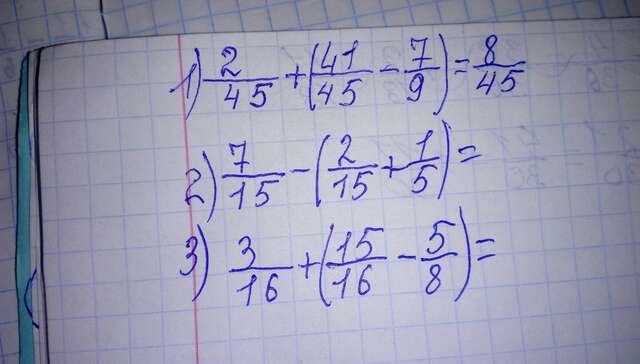 1) 2/45 + (41/45 - 7/9) = 8/45
2) 7/15 - (2/15 + 1/5) =
3) 3/16 + (15/16 - 5/8) =